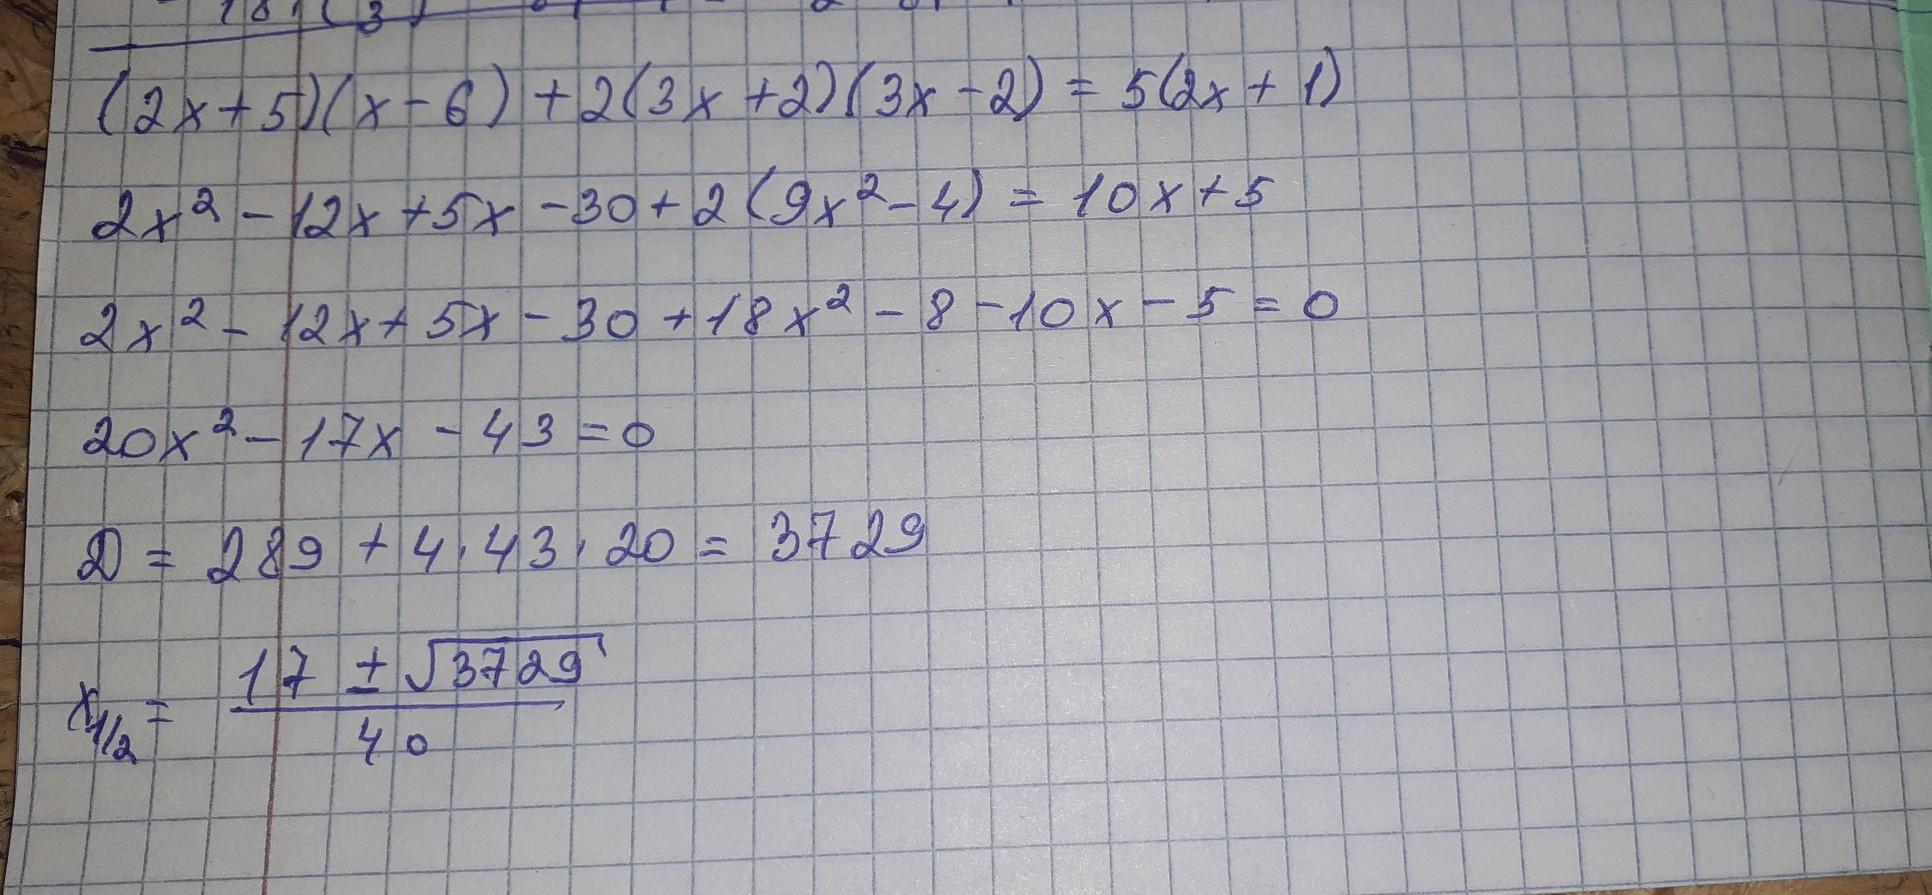 (2x+5)(x-6)+2(3x+2)(3x-2)=5(2x+1)
2x²-12x+5x-30+2(9x²-4)=10x+5
2x²-12x+5x-30+18x²-8-10x-5=0
20x²-17x-43=0
D=289+4·43·20=3729
x₁/₂=(17±√3729)/40